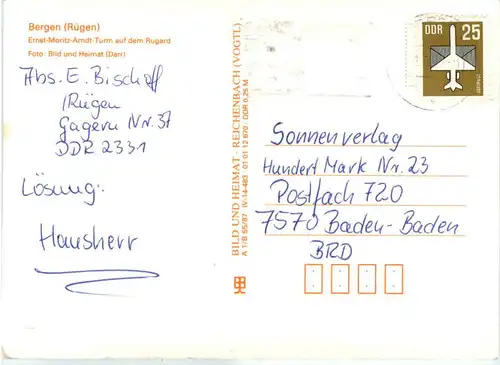 Bergen (Rügen)
Ernst-Moritz-Arndt-Turm auf dem Rugard
Foto: Bild und Heimat (Darr)
Abs. E. Bischoff
/Rügen
Gagern Nr. 37
DDR 2331
Lösung:
Hausherr
BILD UND HEIMAT · REICHENBACH (VOGTL)
A 1/B 55/87 IV-14-483 01 01 12 670 DDR 0,25 M
DDR 25
Sonnenverlag
Hundert Mark Nr. 23
Postfach 720
7570 Baden-Baden
BRD